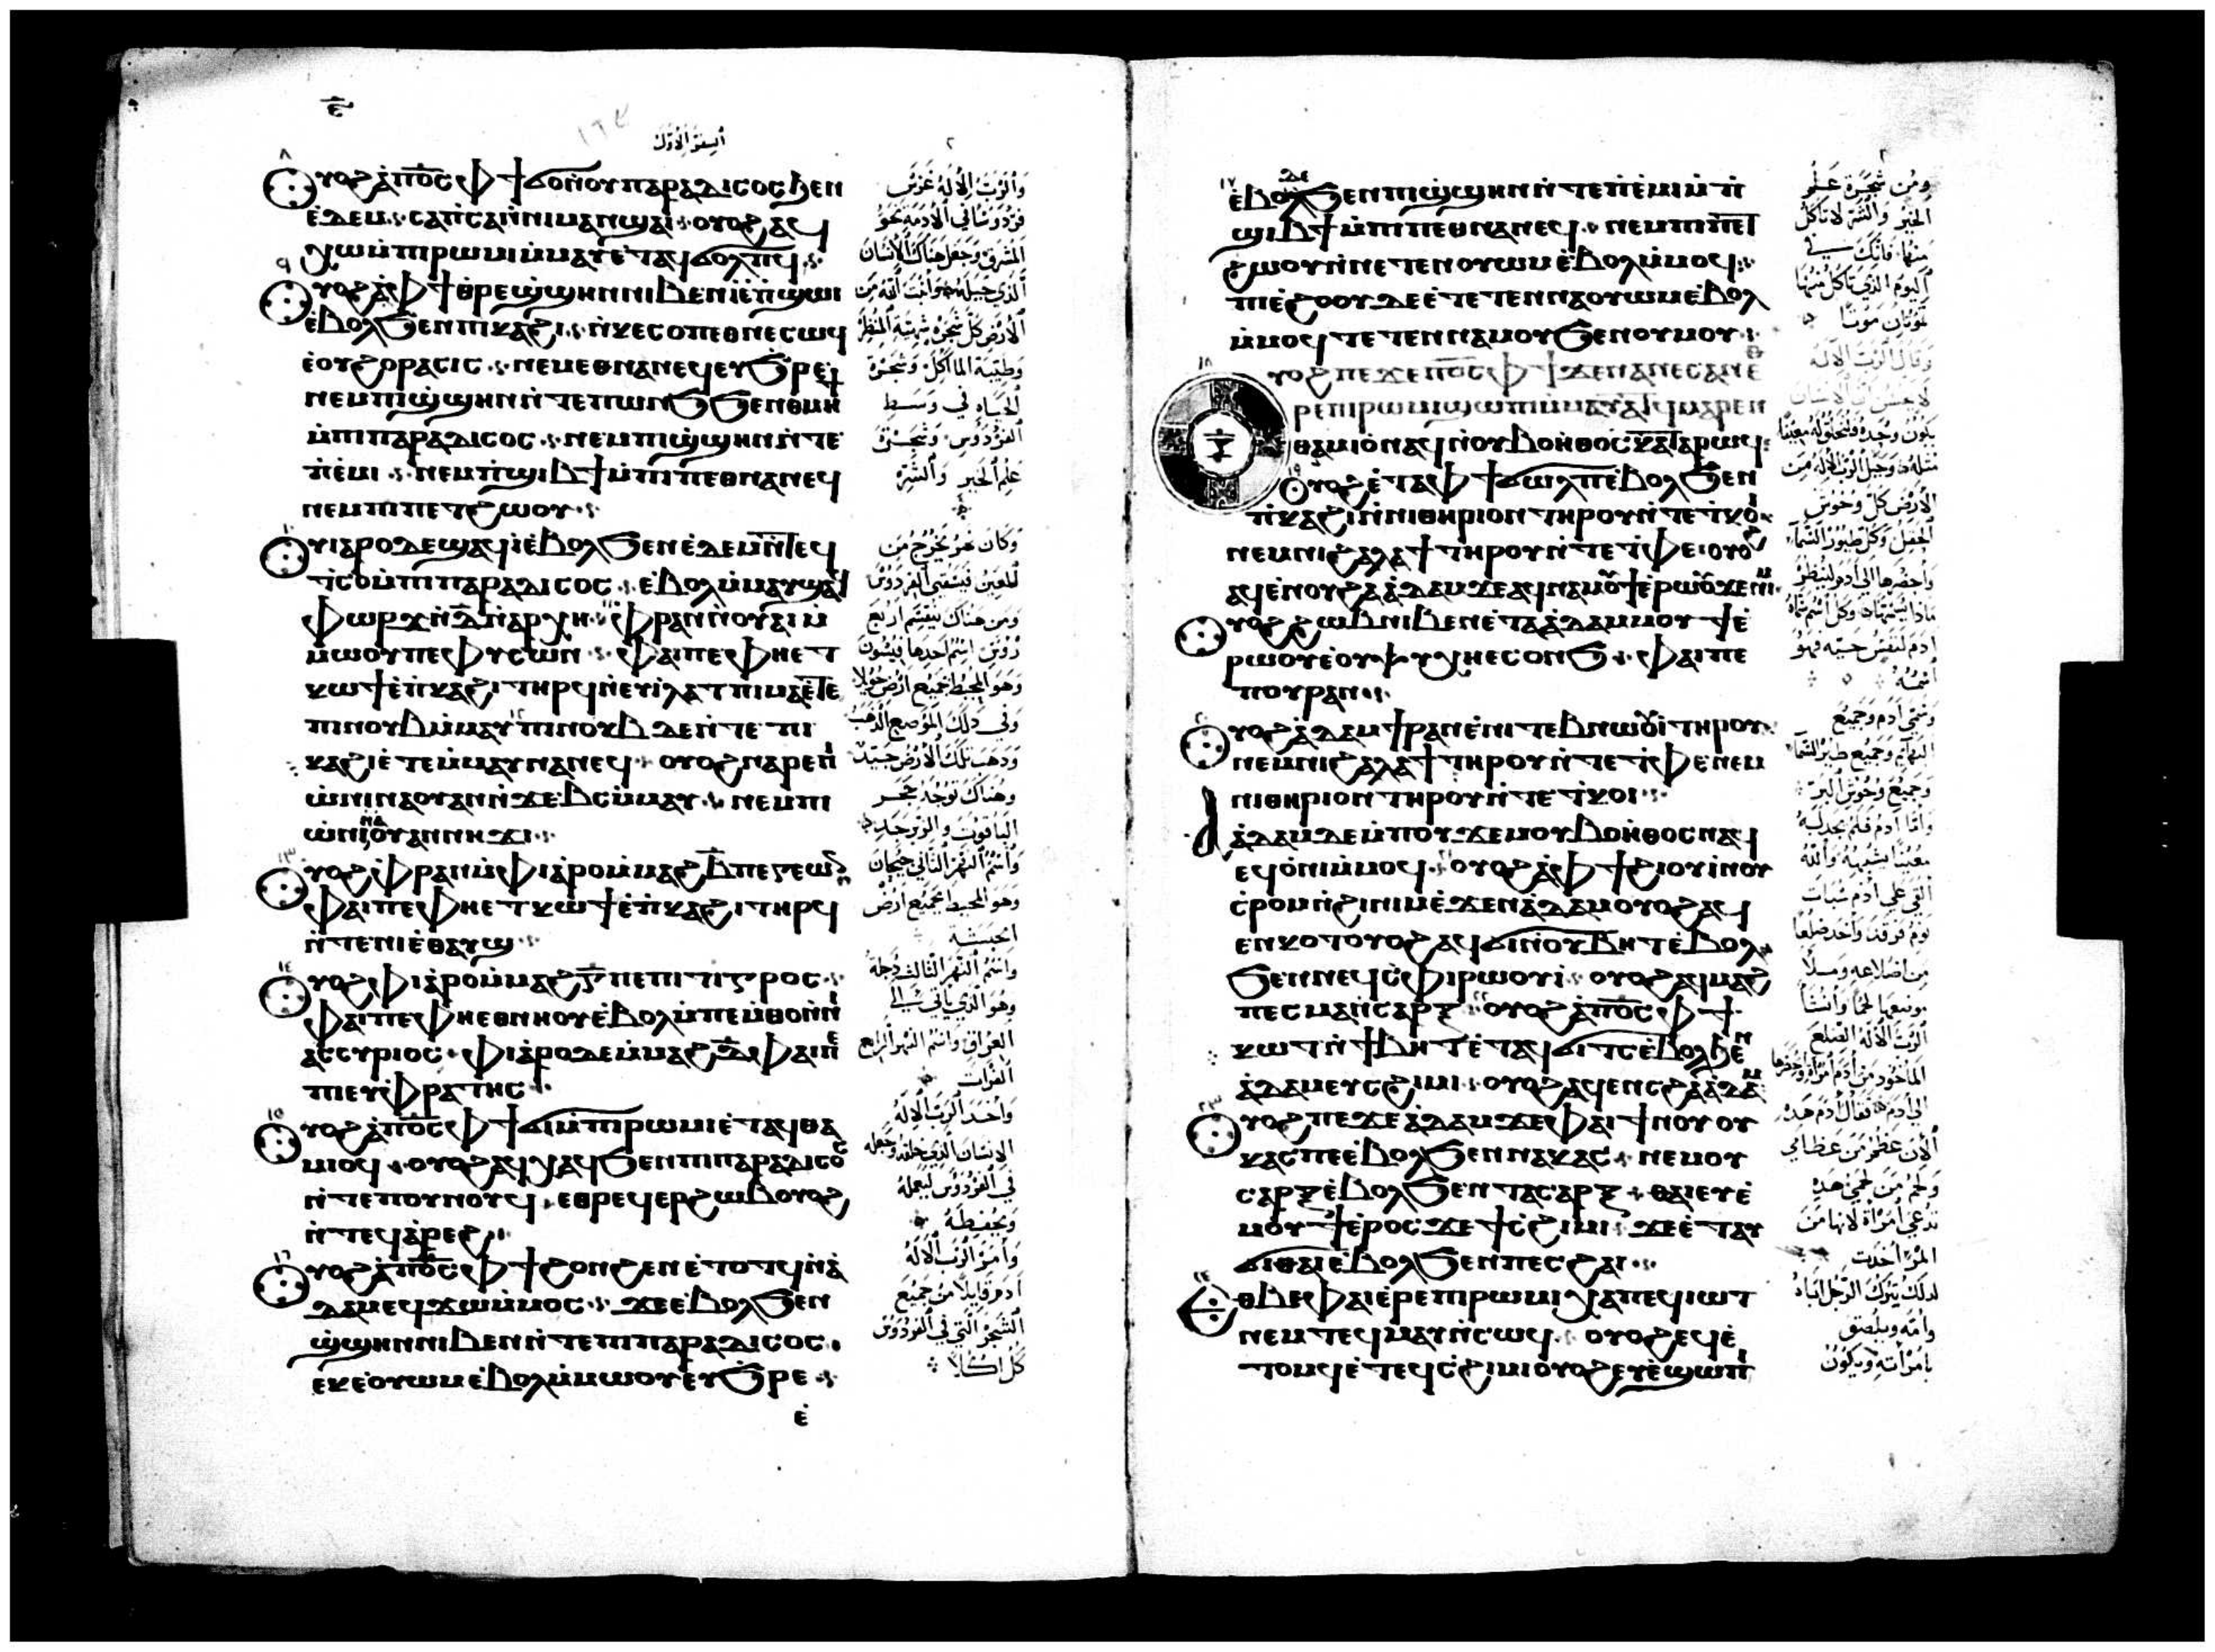 ⲉ̅
السفر الاول
ⲟⲩⲟϩ ⲁ̀ⲡⲟ̅ⲥ̅ ⲫϯ ϭⲟ ⲛ̀ⲟⲩⲡⲁⲣⲁⲇⲓⲥⲟⲥ ϧⲉⲛ
ⲉ̀ⲇⲉⲙ ⲥⲁⲡ̀ⲥⲁ ⲛ̀ⲛⲓⲙⲁⲛϣⲁⲓ ⲟⲩⲟϩ ⲁϥ
ⲭⲱ ⲙ̀ⲡⲓⲣⲱⲙⲓ ⲙ̀ⲙⲁⲩ ⲉ̀ⲧⲁϥϭⲟⲗⲡϥ
ⲟⲩⲟϩ ⲁ̀ⲫϯ ⲑⲣⲉ ϣ̀ϣⲏⲛ ⲛⲓⲃⲉⲛ ⲓ̀ ⲉ̀ⲡ̀ϣⲱⲓ
ⲉ̀ⲃⲟⲗϧⲉⲛ ⲡⲓⲕⲁϩⲓ ⲛ̀ⲕⲉⲥⲟⲡ ⲉⲑⲛⲉⲥⲱϥ
ⲉ̀ⲟⲩϩⲟⲣⲁⲥⲓⲥ ⲛⲉⲙ ⲉⲑⲛⲁⲛⲉϥ ⲉⲩϧ̀ⲣⲉ
ⲛⲉⲙ ⲡⲓϣ̀ϣⲏⲛ ⲛ̀ⲧⲉ ⲡⲱⲛϧ ϧⲉⲛ ⲑⲙⲏϯ
ⲙ̀ⲡⲓⲡⲁⲣⲁⲇⲓⲥⲟⲥ ⲛⲉⲙ ⲡⲓϣ̀ϣⲏⲛ ⲛ̀ⲧⲉ
ⲡ̀ⲉ̀ⲙⲓ ⲛⲉⲙ ⲡ̀ϣⲓⲃϯ ⲙ̀ⲡⲓⲡⲉⲑⲛⲁⲛⲉϥ
ⲛⲉⲙ ⲡⲓⲡⲉⲧϩⲱⲟⲩ
ⲟⲩⲓⲁⲣⲟ ⲇⲉ ϣⲁϥⲓ̀ ⲉ̀ⲃⲟⲗϧⲉⲛ ⲉ̀ⲇⲉⲙ ⲛ̀ⲧⲉϥ
ⲧⲥⲟ ⲙ̀ⲡⲓⲡⲁⲣⲁⲇⲓⲥⲟⲥ ⲉ̀ⲃⲟⲗⲙ̀ⲙⲁⲩ ϣⲁϥ
ⲫⲱⲣϫ ⲛ̀ⲇ̅ ⲛ̀ⲁⲣⲭⲏ ⲫ̀ⲣⲁⲛ ⲛ̀ⲟⲩⲁⲓ ⲙ̀
ⲙⲱⲟⲩ ⲡⲉ ⲫⲩⲥⲱⲛ ⲫⲁⲓ ⲡⲉ ⲫⲏⲉⲧ
ⲕⲱϯ ⲉ̀ⲡ̀ⲕⲁϩⲓ ⲧⲏⲣϥ ⲛ̀ⲉⲩⲓ̀ⲗⲁⲧ ⲡⲓⲙⲁ ⲉ̀ⲧⲉ
ⲡⲓⲛⲟⲩⲃ ⲙ̀ⲙⲁⲩ ⲡⲓⲛⲟⲩⲃ ⲇⲉ ⲛ̀ⲧⲉ ⲡⲓ
ⲕⲁϩⲓ ⲉ̀ⲧⲉⲙ̀ⲙⲁⲩ ⲛⲁⲛⲉϥ ⲟⲩⲟϩ ⲛⲁⲣⲉ ⲡⲓ
ⲱ̀ⲛⲓ ⲛⲁⲟⲩⲁⲛ ⲛ̀ϫⲉⲃⲥ ⲙ̀ⲙⲁⲩ ⲛⲉⲙ ⲡⲓ
ⲱ̀ⲛⲓ ⲛⲁⲟⲩⲁⲛ ⲛⲏϫⲓ
ⲟⲩⲟϩ ⲫ̀ⲣⲁⲛ ⲙ̀ⲫⲓⲁⲣⲟ ⲙ̀ⲙⲁϩⲃ̅ ⲡⲉ ⲅⲉⲱⲛ
ⲫⲁⲓ ⲡⲉ ⲫⲏⲉⲧⲕⲱϯ ⲉ̀ⲡ̀ⲕⲁϩⲓ ⲧⲏⲣϥ
ⲛ̀ⲧⲉ ⲛⲓⲉ̀ⲑⲁⲩϣ
ⲟⲩⲟϩ ⲫⲓⲁⲣⲟ ⲙ̀ⲙⲁϩⲅ̅ ⲡⲉ ⲡⲓⲧⲓⲅⲣⲟⲥ
ⲫⲁⲓ ⲡⲉ ⲫⲏⲉⲑⲛⲏⲟⲩ ⲉ̀ⲃⲟⲗ ⲙ̀ⲡⲉⲙ̀ⲑⲟ ⲛ̀ⲛⲓ
ⲁⲥⲥⲩⲣⲓⲟⲥ ⲫⲓⲁⲣⲟ ⲇⲉ ⲙ̀ⲙⲁϩⲇ̅ ⲫⲁⲓ ⲡⲉ
ⲡⲓⲉⲩⲫⲣⲁⲧⲏⲥ
ⲟⲩⲟϩ ⲁ̀ⲡⲟ̅ⲥ̅ ⲫϯ ϭⲓ ⲙ̀ⲡⲓⲣⲱⲙⲓ ⲉ̀ⲧⲁϥⲑⲁ
ⲙⲓⲟϥ ⲟⲩⲟϩ ⲁϥⲭⲁϥ ϧⲉⲛ ⲡⲓⲡⲁⲣⲁⲇⲓⲥⲟⲥ
ⲛ̀ⲧⲉ ⲡⲟⲩⲛⲟⲩϥ ⲉⲑⲣⲉϥⲉⲣϩⲱⲃ ⲟⲩⲟϩ
ⲛ̀ⲧⲉϥⲁ̀ⲣⲉϩ
ⲟⲩⲟϩ ⲁ̀ⲡⲟ̅ⲥ̅ ⲫϯ ϩⲟⲛϩⲉⲛ ⲉ̀ⲧⲟⲧϥ ⲛ̀ⲁ̀
ⲇⲁⲙ ⲉϥϫⲱ ⲙ̀ⲙⲟⲥ ϫⲉ ⲉ̀ⲃⲟⲗϧⲉⲛ
ϣ̀ϣⲏⲛ ⲛⲓⲃⲉⲛ ⲛ̀ⲧⲉ ⲡⲓⲡⲁⲣⲁⲇⲓⲥⲟⲥ
ⲉⲕⲉⲟⲩⲱⲙ ⲉ̀ⲃⲟⲗ ⲙ̀ⲙⲱⲟⲩ ⲉⲩϧ̀ⲣⲉ
ⲉ̀
والرب الاله غرس
فردوسا في الادمة نحو
المشرق وجعل هناك الانسان
الذي جبله وانبت الله من
الارض كل شجرة شهية المنظر
وطيبة الماأكل وشجرة
الحياه في وسط
الفردوس وشجرة
علم الخير والشر
وكان نهر يخرج من
العين فيسقي الفردوس
ومن هناك ينقسم اربع
رؤوس اسم احدها فيشون
وهو المحيط بجميع ارض حويلا
وفي ذلك الموضع الذهب
وذهب تلك الارض جيد
وهناك توجد حجر
الياقوت
واسم النهر الثاني جيحان
وهو المحيط بجميع ارض
الحبشه
واسم النهر الثالث دجلة
وهو الذي ياتي الي
العراق واسم النهر الرابع
الفرات
واخذ الرب الاله
الانسان الذي خلقه وجعله
في الفردوس ليعمله
ويحفظه
وامر الرب الاله
ادم قايلا من جميع
الشجر التي في الفردوس
كل اكلا
ⲉ̀ⲃⲟⲗ ⲇⲉ ϧⲉⲛ ⲡⲓϣ̀ϣⲏⲛ ⲛ̀ⲧⲉ ⲡ̀ⲉ̀ⲙⲓ ⲙ̀ⲡ̀
ϣⲓⲃϯ ⲙ̀ⲡⲓⲡⲉⲑⲛⲁⲛⲉϥ ⲛⲉⲙ ⲡⲓⲡⲉⲧ
ϩⲱⲟⲩ ⲛ̀ⲛⲉⲧⲉⲛⲟⲩⲱⲙ ⲉ̀ⲃⲟⲗ ⲙ̀ⲙⲟϥ
ⲡⲓⲉ̀ϩⲟⲟⲩ ⲇⲉ ⲉ̀ⲧⲉⲧⲉⲛⲛⲁⲟⲩⲱⲙ ⲉ̀ⲃⲟⲗ
ⲙ̀ⲙⲟϥ ⲧⲉⲧⲉⲛⲛⲁⲙⲟⲩ ϧⲉⲛ ⲟⲩⲙⲟⲩ
ⲟⲩⲟϩ ⲡⲉϫⲉ ⲡⲟ̅ⲥ̅ ⲫϯ ϫⲉ ⲛⲁⲛⲉⲥ ⲁⲛ ⲉⲑ
ⲣⲉ ⲡⲓⲣⲱⲙⲓ ϣⲱⲡⲓ ⲙ̀ⲙⲁⲩⲁⲧϥ ⲙⲁⲣⲉⲛ
ⲑⲁⲙⲓⲟ̀ ⲛⲁϥ ⲛ̀ⲟⲩⲃⲟⲏ̀ⲑⲟⲥ ⲕⲁⲧⲁⲣⲟϥ
ⲟⲩⲟϩ ⲉ̀ⲧⲁ ⲫϯ ϭⲱⲗⲡ ⲉ̀ⲃⲟⲗϧⲉⲛ
ⲡ̀ⲕⲁϩⲓ ⲛ̀ⲛⲓⲑⲏⲣⲓⲟⲛ ⲧⲏⲣⲟⲩ ⲛ̀ⲧⲉ ⲧ̀ⲕⲟⲓ
ⲛⲉⲙ ⲛⲓϩⲁⲗⲁϯ ⲧⲏⲣⲟⲩ ⲛ̀ⲧⲉ ⲧ̀ⲫⲉ ⲟⲩⲟϩ
ⲁϥⲉ̀ⲛⲟⲩ ϩⲁ ⲁ̀ⲇⲁⲙ ϫⲉ ⲁϥⲛⲁⲙⲟⲩϯ ⲉ̀ⲣⲱⲟⲩ ϫⲉ ⲛⲓⲙ
ⲟⲩⲟϩ ϩⲱⲃ ⲛⲓⲃⲉⲛ ⲉ̀ⲧⲁ ⲁ̀ⲇⲁⲙ ⲙⲟⲩϯ ⲉ̀
ⲣⲱⲟⲩ ⲉ̀ⲟⲩⲯⲩⲭⲏ ⲉⲥⲟⲛϧ ⲫⲁⲓ ⲡⲉ
ⲡⲟⲩⲣⲁⲛ
ⲟⲩⲟϩ ⲁ̀ⲇⲁⲙ ϯⲣⲁⲛ ⲉ̀ⲛⲓⲧⲉⲃⲛⲱⲟⲩⲓ̀ ⲧⲏⲣⲟⲩ
ⲛⲉⲙ ⲛⲓϩⲁⲗⲁϯ ⲧⲏⲣⲟⲩ ⲛ̀ⲧⲉ ⲧ̀ⲫⲉ ⲛⲉⲙ
ⲛⲓⲑⲏⲣⲓⲟⲛ ⲧⲏⲣⲟⲩ ⲛ̀ⲧⲉ ⲧ̀ⲕⲟⲓ
ⲁ̀ⲇⲁⲙ ⲇⲉ ⲙ̀ⲡⲟⲩϫⲉⲙ ⲟⲩⲃⲟⲏ̀ⲑⲟⲥ ⲛⲁϥ
ⲉϥⲟ̀ⲛⲓ ⲙ̀ⲙⲟϥ ⲟⲩⲟϩ ⲁ̀ⲫϯ ϩⲓⲟⲩⲓ̀ ⲛ̀ⲟⲩ
ⲥ̀ⲣⲟⲙ ⲛ̀ϩⲓⲛⲓⲙ ⲉ̀ϫⲉⲛ ⲁ̀ⲇⲁⲙ ⲟⲩⲟϩ ⲁϥ
ⲉⲛⲕⲟⲧ ⲟⲩⲟϩ ⲁϥϭⲓ ⲛ̀ⲟⲩⲃⲏⲧ ⲉ̀ⲃⲟⲗ
ϧⲉⲛ ⲛⲉϥⲥ̀ⲫⲓⲣⲱⲟⲩⲓ̀ ⲟⲩⲟϩ ⲁϥⲙⲁϩ
ⲡⲉⲥⲙⲁ ⲛ̀ⲥⲁⲣⲝ ⲟⲩⲟϩ ⲁ̀ⲡⲟ̅ⲥ̅ ⲫϯ
ⲕⲱⲧ ⲛ̀ϯⲃⲏⲧ ⲉ̀ⲧⲁϥϭⲓⲧⲥ ⲉ̀ⲃⲟⲗϧⲉⲛ
ⲁ̀ⲇⲁⲙ ⲉⲩⲥϩⲓⲙⲓ ⲟⲩⲟϩ ⲁϥⲉⲛⲥ ϩⲁ ⲁ̀ⲇⲁⲙ
ⲟⲩⲟϩ ⲡⲉϫⲉ ⲁ̀ⲇⲁⲙ ϫⲉ ⲫⲁⲓ ϯⲛⲟⲩ ⲟⲩ
ⲕⲁⲥ ⲡⲉ ⲉ̀ⲃⲟⲗϧⲉⲛ ⲛⲁⲕⲁⲥ ⲛⲉⲙ ⲟⲩ
ⲥⲁⲣⲝ ⲉ̀ⲃⲟⲗϧⲉⲛ ⲧⲁⲥⲁⲣⲝ ⲑⲁⲓ ⲉⲩⲉ̀
ⲙⲟⲩϯ ⲉ̀ⲣⲟⲥ ϫⲉ ϯⲥ̀ϩⲓⲙⲓ ϫⲉ ⲉ̀ⲧⲁⲩ
ϭⲓ ⲑⲁⲓ ⲉ̀ⲃⲟⲗϧⲉⲛ ⲡⲉⲥϩⲁⲓ
ⲉⲑⲃⲉ ⲫⲁⲓ ⲉ̀ⲣⲉ ⲡⲓⲣⲱⲙⲓ ⲭⲁ ⲡⲉϥⲓⲱⲧ
ⲛⲉⲙ ⲧⲉϥⲙⲁⲩ ⲛ̀ⲥⲱϥ ⲟⲩⲟϩ ⲉϥⲉ̀
ⲧⲟⲙϥ ⲉ̀ⲧⲉϥⲥ̀ϩⲓⲙⲓ ⲟⲩⲟϩ ⲉⲩⲉ̀ϣⲱⲡⲓ
ومن شجرة علم
الخير والشر لا تاكل
منها فانك في
اليوم الذي تاكل منها
تموتان موتا
وقال الرب الاله
لا حسن ان الانسان
يكون وحده فلنخلق له معينا
مثله وجبل الرب الاله من
الارض كل وحوش
الحقل وكل طيور السما
واحضرها الي ادم لينظر
ماذا يسميها وكل اسم سماه
ادم لنفس حية فهو
اسمه
وسمي ادم جميع
البهايم وجميع طير السما
وجميع وحوش البر
واما ادم فلم يجد له
معينا يشبهه والله
القي علي ادم سبات
نوم فرقد واخذ ضلعا
من اضلاعه وملأ
موضعها لحما وانشأ
الرب الاله الضلع
الماخوذ من ادم امرأة واحضرها
الي ادم فقال ادم هذه
الان عظم من عظامي
ولحم من لحمي هذه
تدعي امرأة لانها من
المرء اخذت
لذلك يترك الرجل اباه
وامه ويلصق
بامرأته ويكون